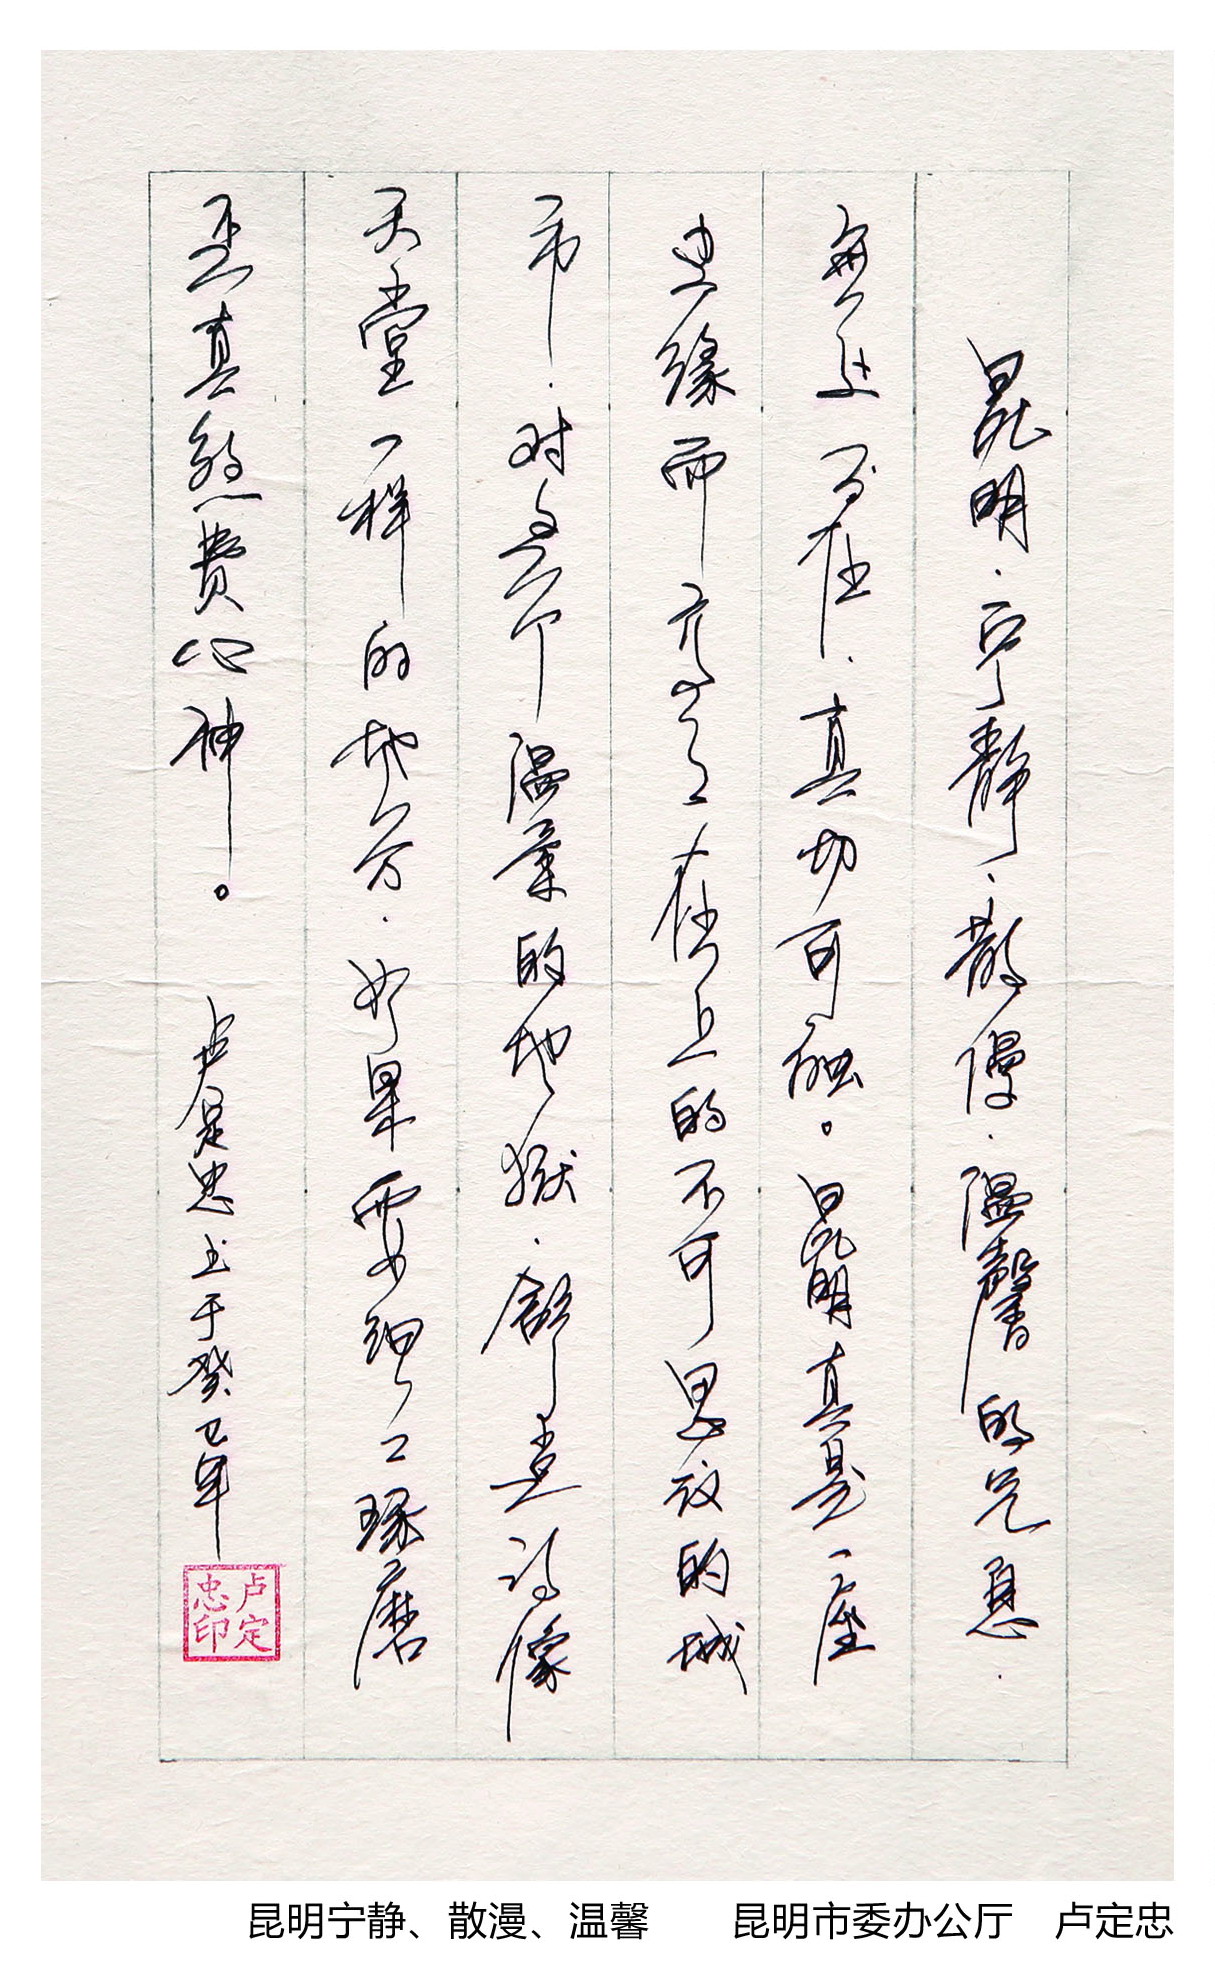 昆明.宁静.散漫.温馨的气息.
无处不在.真切可触。昆明真是一座
缘而高高在上的不可思议的城
市.对这个温柔的地狱.舒得像
天堂一样的地方.如果要细细琢磨
还真煞費心神。 卢定忠书于癸巳年
卢定忠印
昆明宁静、散漫、温馨 昆明市委办公厅 卢定忠